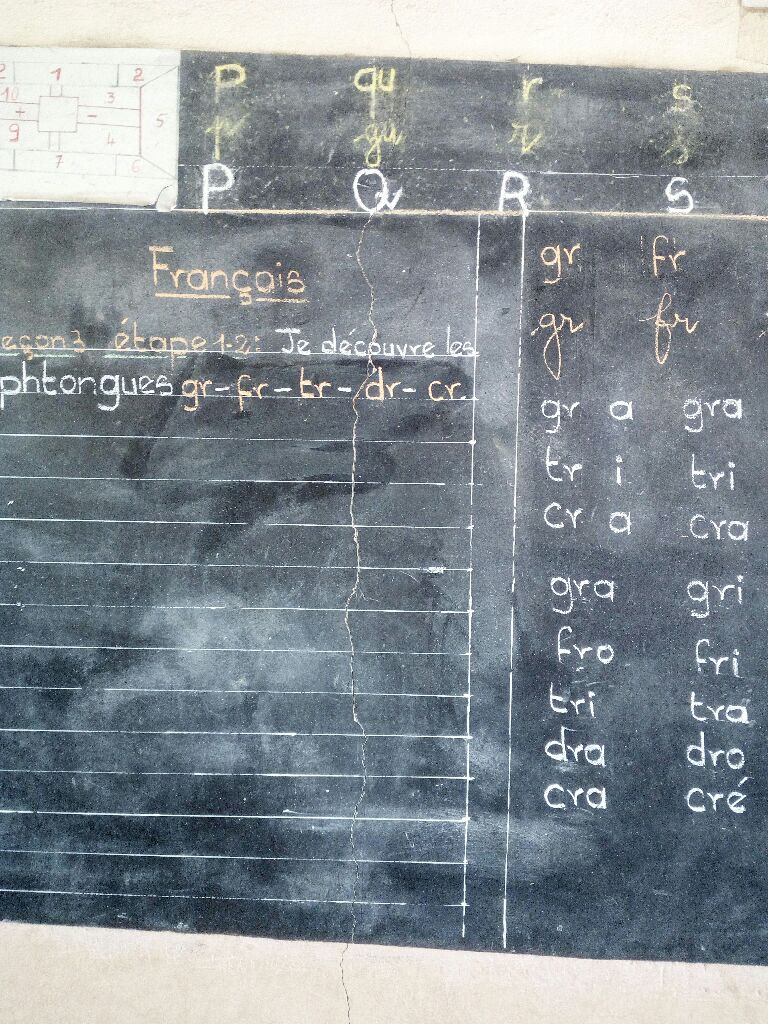 2 1 2
10 3
+ - 5
9 4
7 6
P qu r s
p qu r s
P Q R S
Français
eçon 3 étape 1-2: Je découvre les
phtongues gr - fr - tr - dr - cr.
gr fr
gr fr
gr a gra
tr i tri
cr a cra
gra gri
fro fri
tri tra
dra dro
cra cré